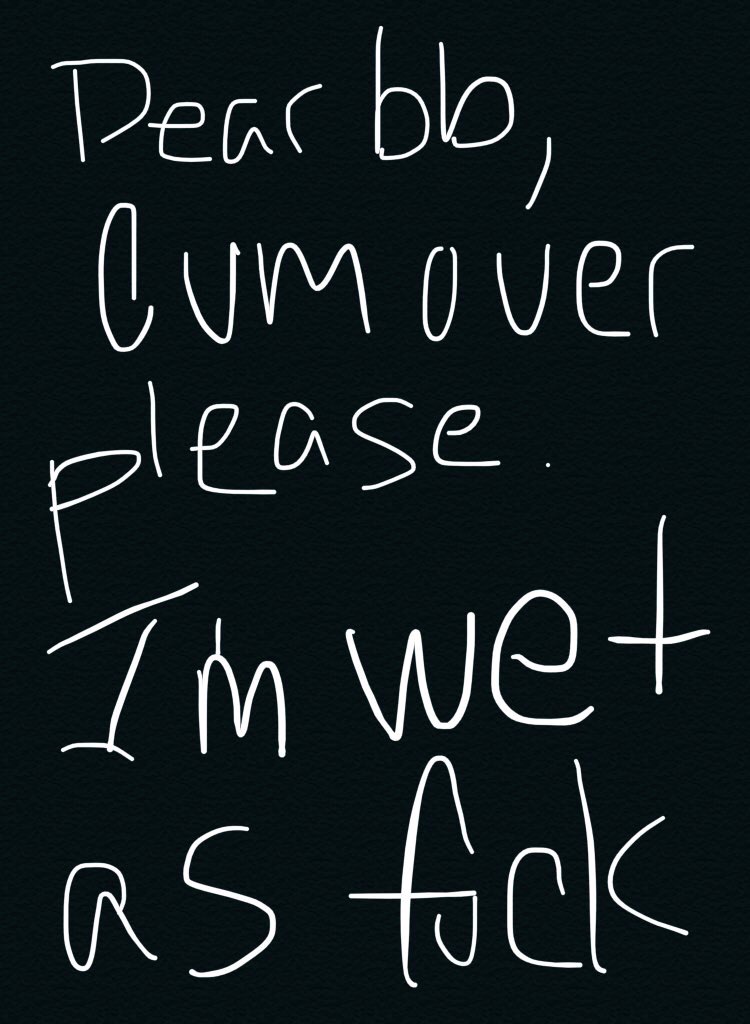 Dear bb,
Cum over
please.
I'm wet
as fuck